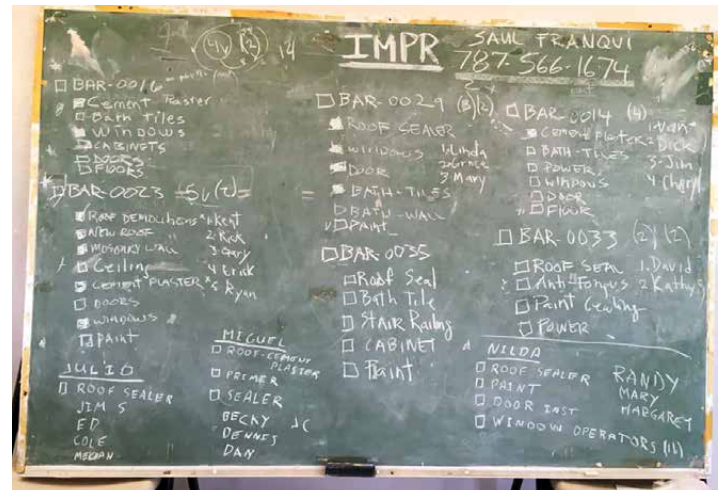 4v (2) 14
IMPR
SAUL FRANQUI
787-566-1674
BAR-0016
Cement Plaster
Bath Tiles
Windows
CABINETS
DOORS
FLOORS
BAR-0023 5v (2) =
ROOF DEMOLITIONS 1 Kent
NEW ROOF 2 Rick
MASONRY WALL 3 Gary
Ceiling 4 Erick
CEMENT PLASTER 5 Ryan
DOORS
WINDOWS
PAINT
JULIO
ROOF SEALER
JIM S
ED
COLE
MIGUEL
ROOF-CEMENT
PLASTER
PRIMER
SEALER
BECKY JC
DENNIS
DAN
BAR-0029 (3)(2)
ROOF SEALER
WINDOWS 1. Linda
DOOR 2 Grace
3 Mary
BATH-TILES
BATH-WALL
PAINT
BAR-0035
Roof Seal
Bath Tile
STAIR Railing
CABINET
Paint
BAR-0014 (4)
CEMENT PLASTER 2 Dick
BATH-TILES
POWER 3-Jim
WINDOWS 4 Cheryl
DOOR
FLOOR
BAR-0033 (2)(2)
ROOF SEAL 1. David
Anti-Fongus 2 Kathy
Paint Cealing
POWER
NILDA
ROOF SEALER RANDY
PAINT MARY
DOOR INST MARGARET
WINDOW OPERATORS (16)